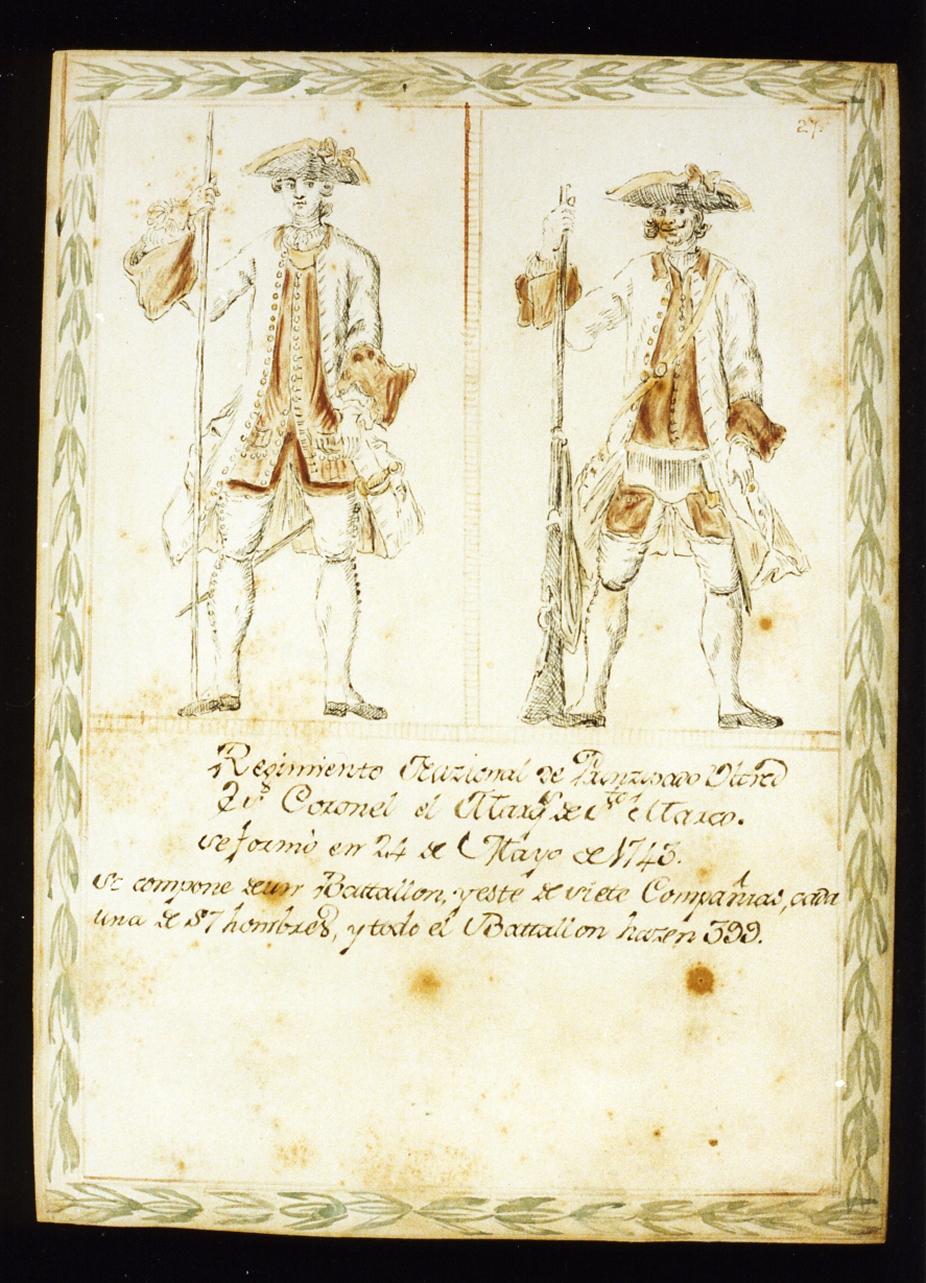 27.
Regimiento Nazional de Prinzipado Ultra
Su Coronel el Marq.s de S.to Marco.
se formò en 24 de Mayo de 1743.
Se compone de un Battallon, y este de siete Compañias, cada
una de 57 hombres, y todo el Battallon hazen 399.